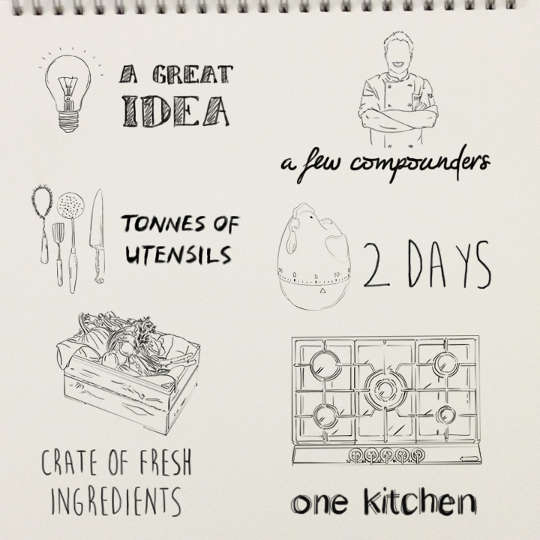 A GREAT
IDEA
a few compounders
TONNES OF
UTENSILS
2 DAYS
CRATE OF FRESH
INGREDIENTS
one kitchen